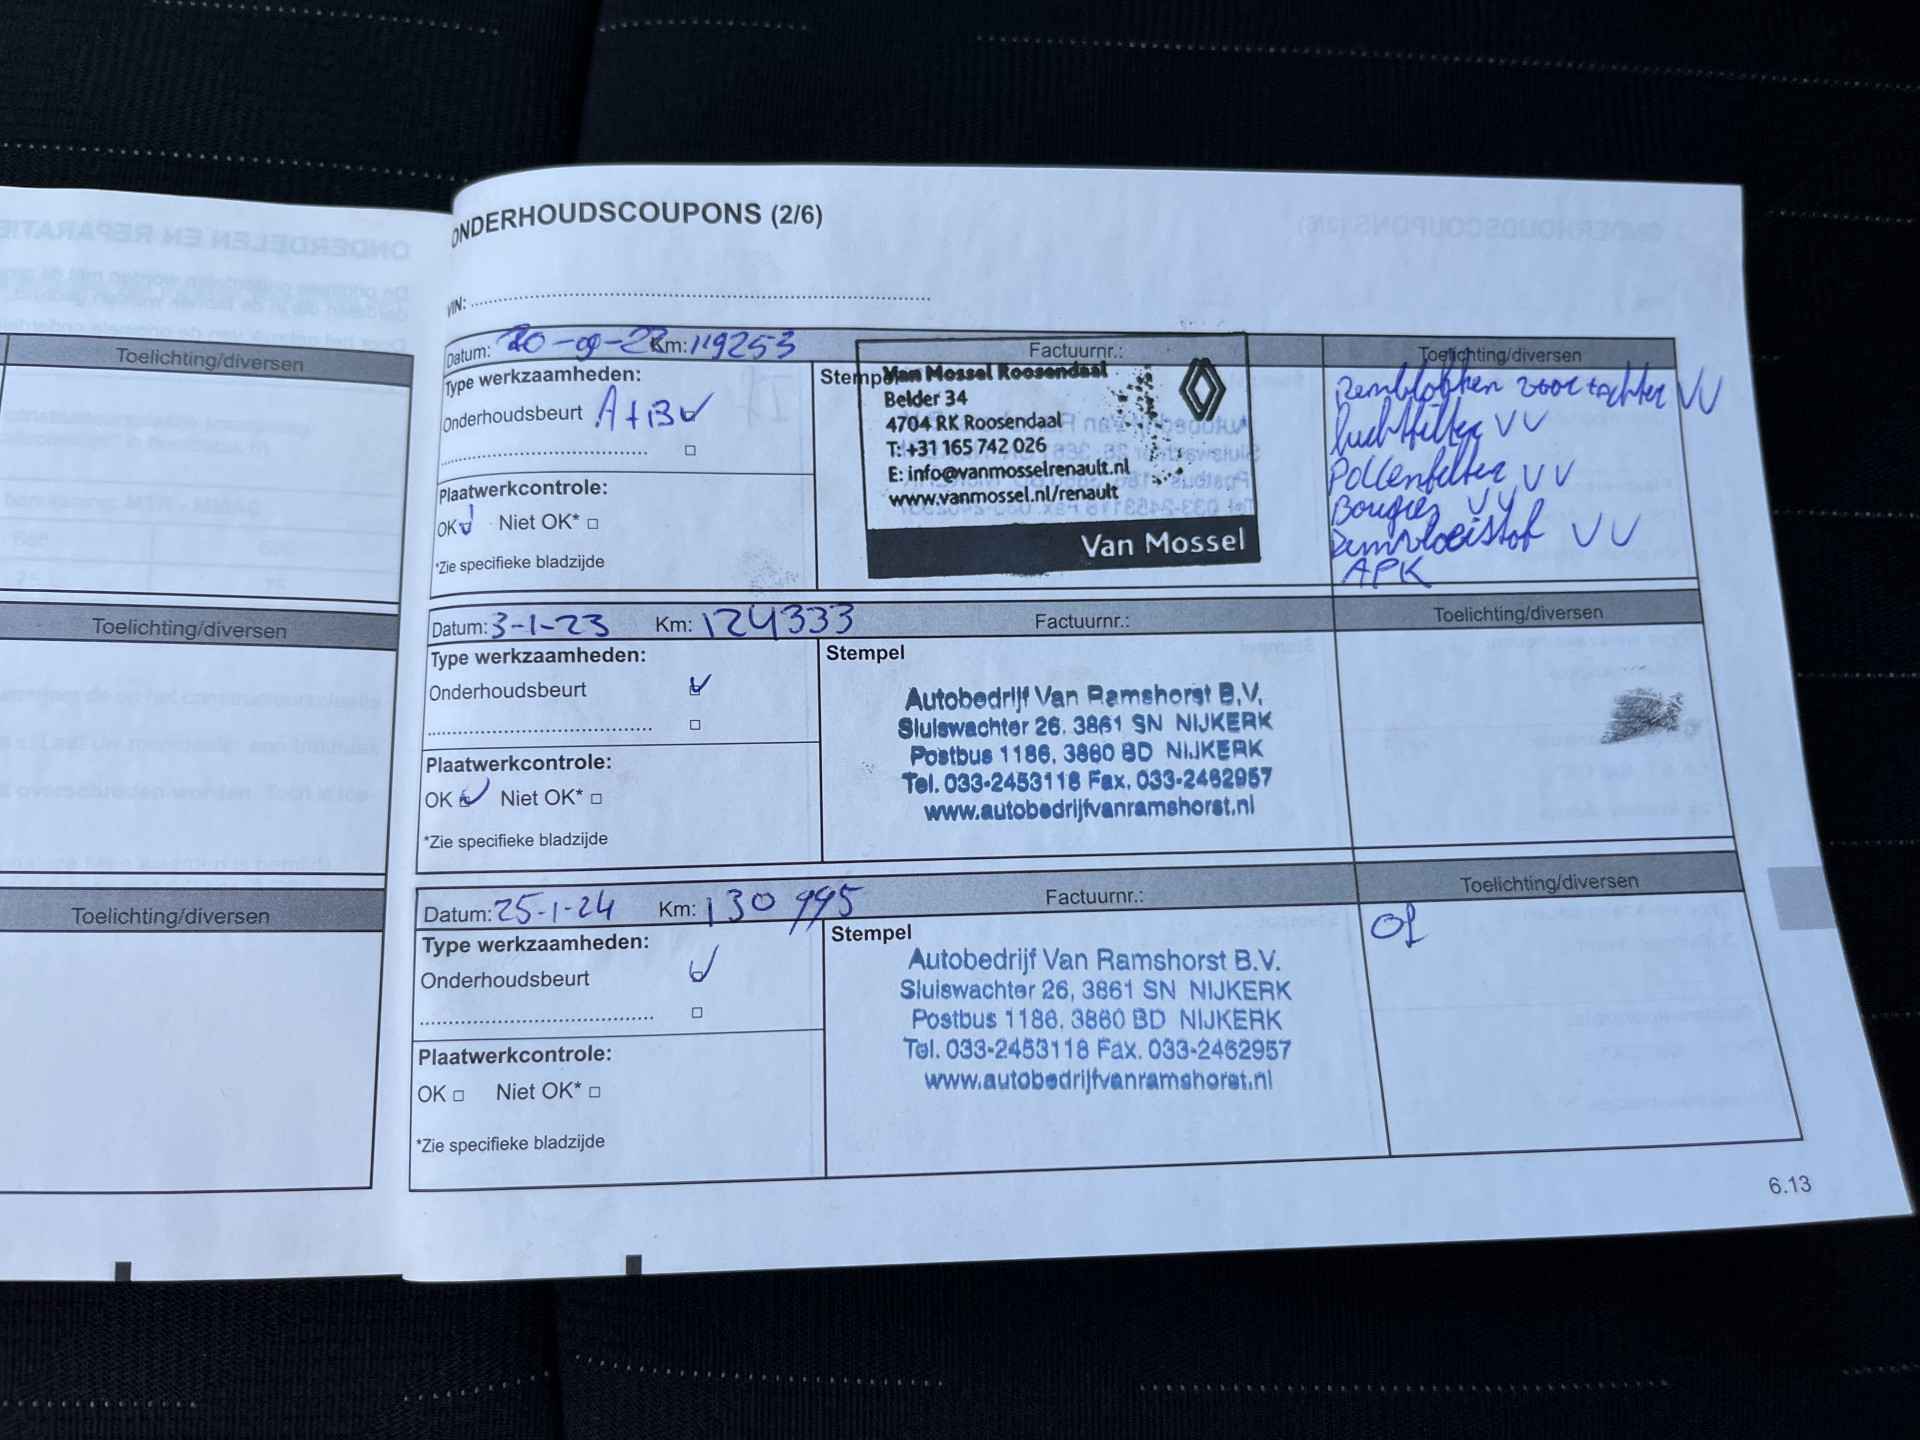 ONDERHOUDSCOUPONS (2/6)
VIN:
Toelichting/diversen
Toelichting/diversen
Toelichting/diversen
Datum: 20-09-22 Km: 119253 Factuurnr.: Toelichting/diversen
Type werkzaamheden:
Onderhoudsbeurt A+B
Plaatwerkcontrole:
OK Niet OK*
*Zie specifieke bladzijde
Stempel
Van Mossel Roosendaal
Belder 34
4704 RK Roosendaal
T: +31 165 742 026
E: info@vanmosselrenault.nl
www.vanmossel.nl/renault
Van Mossel
Remblokken voor + achter VV
Luchtfilter VV
Pollenfilter VV
Bougies VV
Remvloeistof VV
APK
Datum: 3-1-23 Km: 124333 Factuurnr.: Toelichting/diversen
Type werkzaamheden:
Onderhoudsbeurt
Plaatwerkcontrole:
OK Niet OK*
*Zie specifieke bladzijde
Stempel
Autobedrijf Van Ramshorst B.V.
Sluiswachter 26, 3861 SN NIJKERK
Postbus 1186, 3860 BD NIJKERK
Tel. 033-2453118 Fax. 033-2462957
www.autobedrijfvanramshorst.nl
Datum: 25-1-24 Km: 130995 Factuurnr.: Toelichting/diversen
Type werkzaamheden:
Onderhoudsbeurt
Plaatwerkcontrole:
OK Niet OK*
*Zie specifieke bladzijde
Stempel
Autobedrijf Van Ramshorst B.V.
Sluiswachter 26, 3861 SN NIJKERK
Postbus 1186, 3860 BD NIJKERK
Tel. 033-2453118 Fax. 033-2462957
www.autobedrijfvanramshorst.nl
6.13